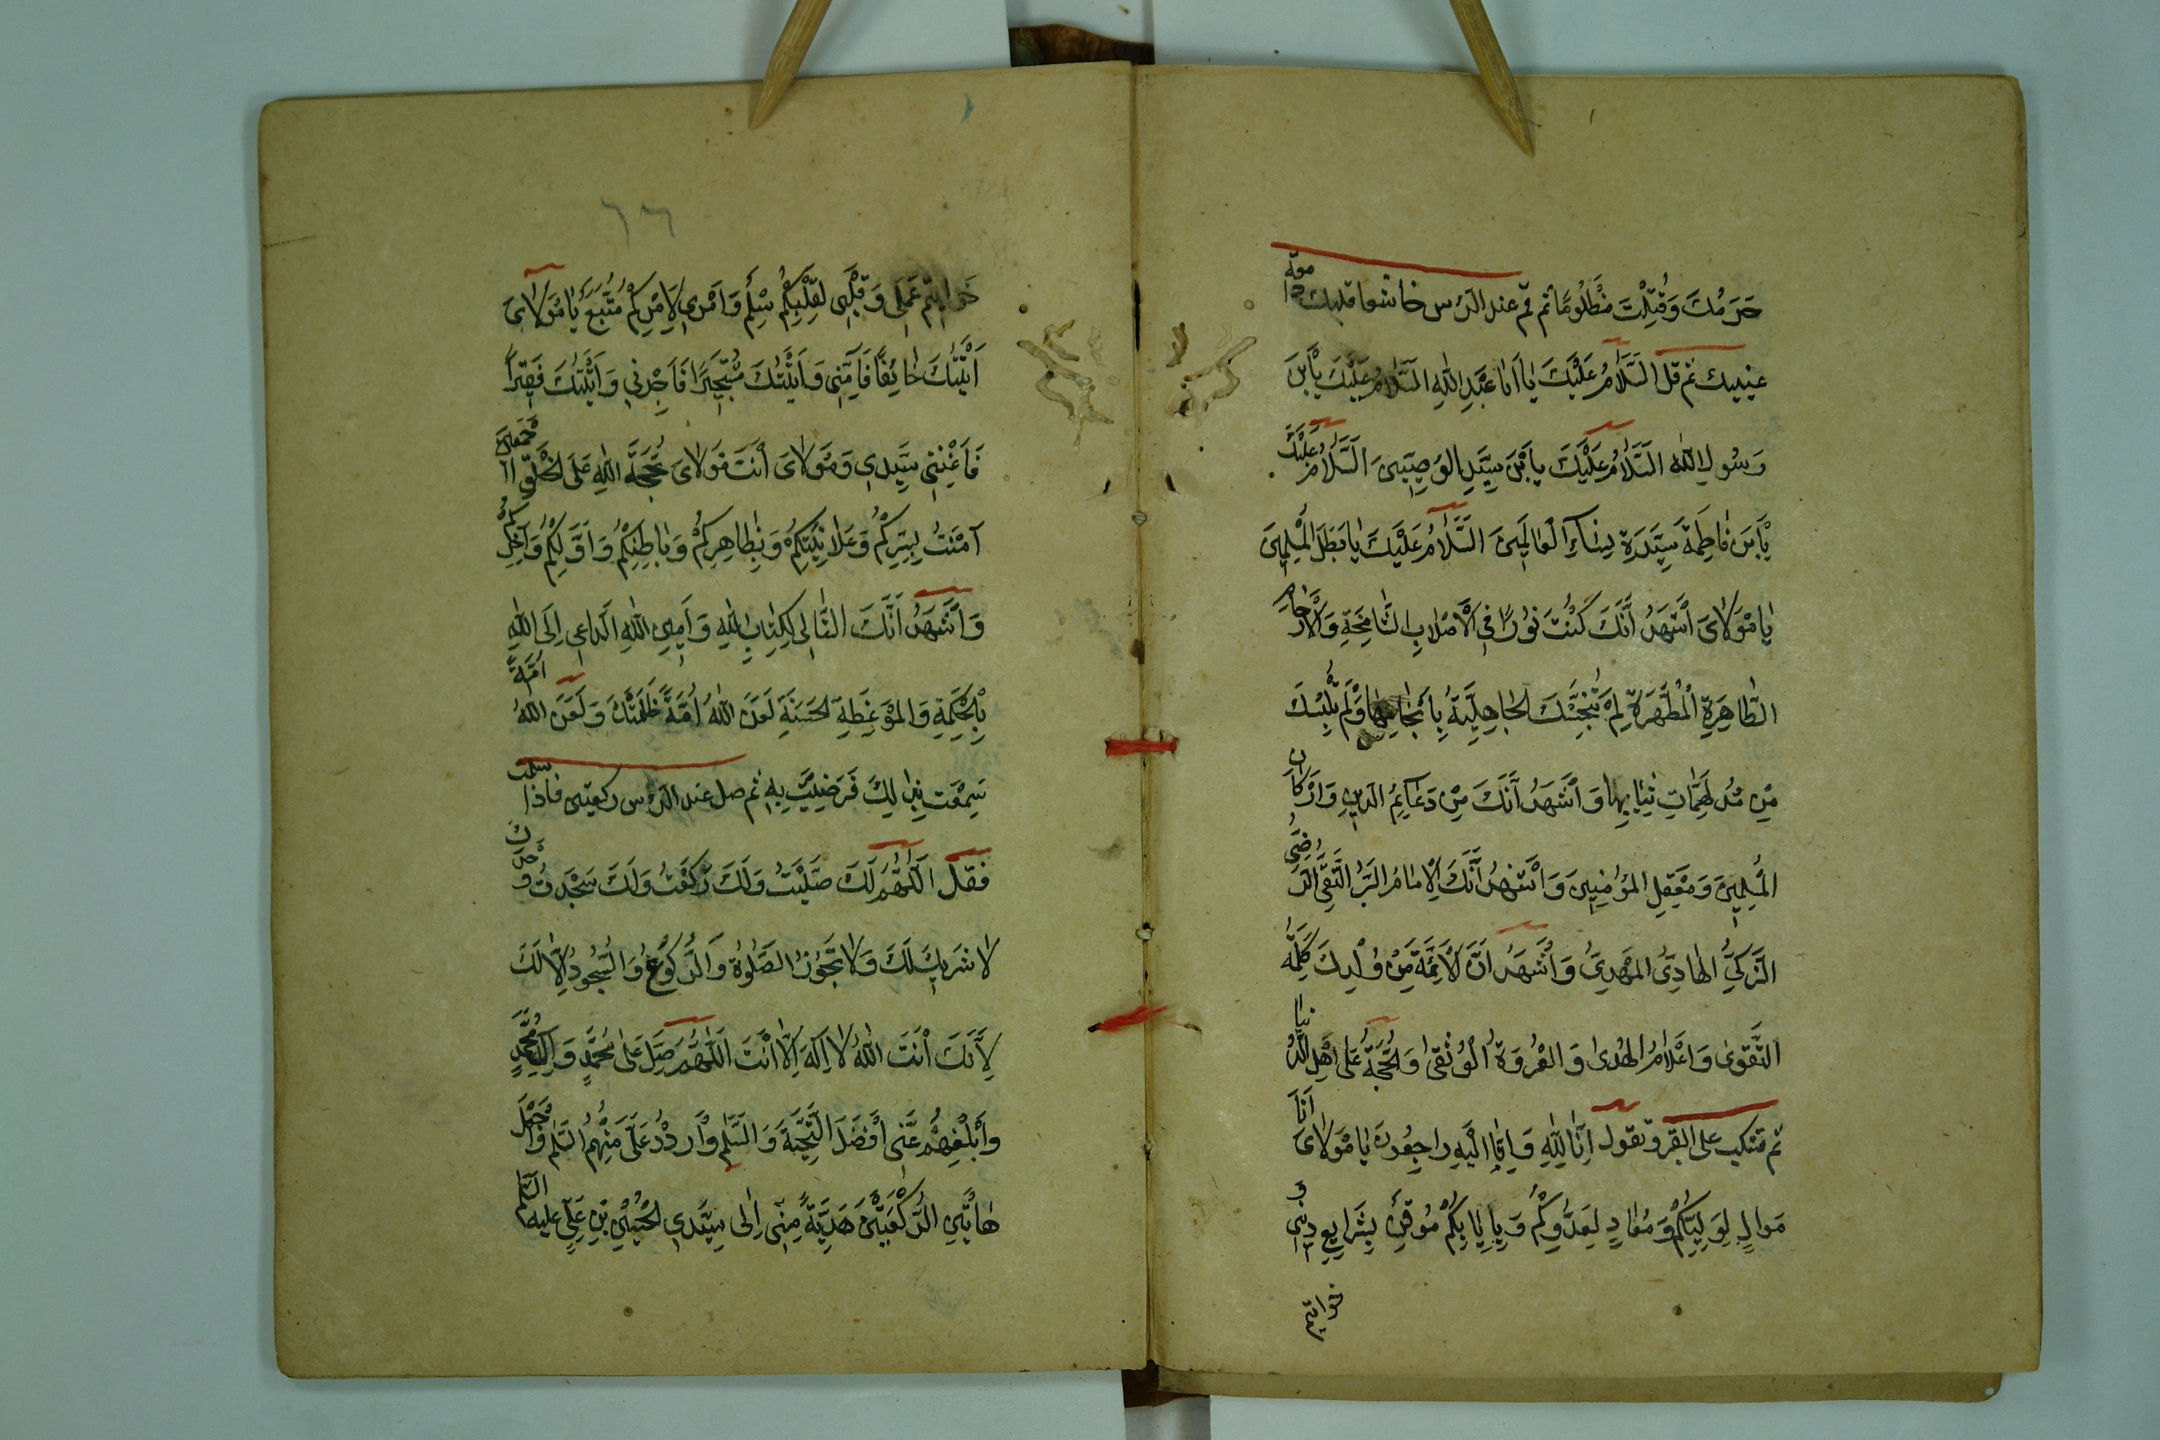 حَرَمُكَ وَقُتِلْتَ مَظْلُومًا ثم قم عند الرٔس خاشعا قلبك دامعة
عينيك ثم قل اَلسَّلامُ عَلَيْكَ يٰا اَبٰا عَبْدِ اللّٰهِ اَلسَّلامُ عَلَيْكَ يَابْنَ
رَسُولِ اللّٰه اَلسَّلٰامُ عَلَيْكَ يَابْنَ سَيِّدِ الوَصِيّيٖنَ اَلسَّلٰامُ عَلَيْكَ
يَابْنَ فٰاطِمَةَ سَيِّدَةِ نِسٰاءِ الْعٰالَمِيٖنَ اَلسَّلٰامُ عَلَيْكَ يٰا بَطَلَ الْمُسْلِمِيٖنَ
يٰا مَوْلٰاىَ اَشْهَدُ اَنَّكَ كُنْتَ نُورًا فِي الْاَصْلٰابِ الشّٰامِخَةِ وَالْاَرْحٰامِ
الطّٰاهِرَةِ الْمُطَهَّرَةِ لَمْ تُنَجِّسْكَ الْجٰاهِلِيَّةُ بِاَنْجٰاسِهٰا وَلَمْ تُلْبِسْكَ
مِنْ مُدْلَهِمّٰاتِ ثِيٰابِهٰا وَاَشْهَدُ اَنَّكَ مِنْ دَعٰائِمِ الدّيٖنِ وَاَرْكٰانِ
الْمُسْلِمِيٖنَ وَمَعْقِلِ الْمُؤْمِنِيٖنَ وَاَشْهَدُ اَنَّكَ الْاِمٰامُ الْبَرُّ التَّقِىُّ الرَّضِىُّ
الزَّكِىُّ الْهٰادِىُ الْمَهْدِىُّ وَاَشْهَدُ اَنَّ الْاَئِمَّةَ مِنْ وُلْدِكَ كَلِمَةُ
التَّقْوىٰ وَاَعْلٰامُ الْهُدىٰ وَالْعُرْوَةُ الْوُثْقىٰ وَالْحُجَّةُ عَلىٰ اَهْلِ الدُّنْيٰا
ثم تنكب على القبر وتقول اِنّٰا لِلّٰهِ وَاِنّٰا اِلَيْهِ رٰاجِعُونَ يٰا مَوْلٰاىَ اَنَا
مَوٰالٍ لِوَلِيِّكُمْ وَمُعٰادٍ لِعَدُوِّكُمْ وَبِاِيٰابِكُمْ مُوقِنٌ بِشَرٰايِعِ دِيٖنٖى وَ
خواتيم
٦٦
خَوٰاتيٖمِ عَمَلٖى وَقَلْبٖى لِقَلْبِكُمْ سِلْمٌ وَاَمْرٖى لِاَمْرِكُمْ مُتَّبِعٌ يٰا مَوْلٰاىَ
اَتَيْتُكَ خٰائِفًا فَآمِنّٖى وَاَتَيْتُكَ مُسْتَجٖيرًا فَاَجِرْنٖى وَاَتَيْتُكَ فَقٖيرًا
فَاَغْنِنٖى سَيِّدٖى وَمَوْلٰاىَ اَنْتَ مَوْلٰاىَ حُجَّةُ اللّٰهِ عَلَى الْخَلْقِ اَجْمَعٖينَ
آمَنْتُ بِسِرِّكُمْ وَعَلٰانِيَتِكُمْ وَبِظٰاهِرِكُمْ وَبٰاطِنِكُمْ وَاَوَّلِكُمْ وَآخِرِكُمْ
وَاَشْهَدُ اَنَّكَ التّٰالٖى لِكِتٰابِ اللّٰهِ وَاَمٖينُ اللّٰهِ الدّٰاعٖى اِلَى اللّٰهِ
بِالْحِكْمَةِ وَالْمَوْعِظَةِ الْحَسَنَةِ لَعَنَ اللّٰهُ اُمَّةً ظَلَمَتْكَ وَلَعَنَ اللّٰهُ اُمَّةً
سَمِعَتْ بِذٰلِكَ فَرَضِيَتْ بِهِ ثم صل عند الرٔس ركعتين فاذا سلمت
فقل اَللّٰهُمَّ لَكَ صَلَّيْتُ وَلَكَ رَكَعْتُ وَلَكَ سَجَدْتُ وَحْدَكَ
لٰا شَرٖيكَ لَكَ وَلٰا تَجُوزُ الصَّلٰوةُ وَالرُّكُوعُ وَالسُّجُودُ اِلّٰا لَكَ
لِاَنَّكَ اَنْتَ اللّٰهُ لٰا اِلٰهَ اِلّٰا اَنْتَ اَللّٰهُمَّ صَلِّ عَلىٰ مُحَمَّدٍ وَآلِ مُحَمَّدٍ
وَاَبْلِغْهُمْ عَنّٖى اَفْضَلَ التَّحِيَّةِ وَالسَّلٰمِ وَارْدُدْ عَلَىَّ مِنْهُمُ السَّلٰمَ وَاجْعَلْ
هٰاتَيْنِ الرَّكْعَتَيْنِ هَدِيَّةً مِنّٖى اِلىٰ سَيِّدٖى الْحُسَيْنِ بْنِ عَلِىٍّ عليه السّلٰم